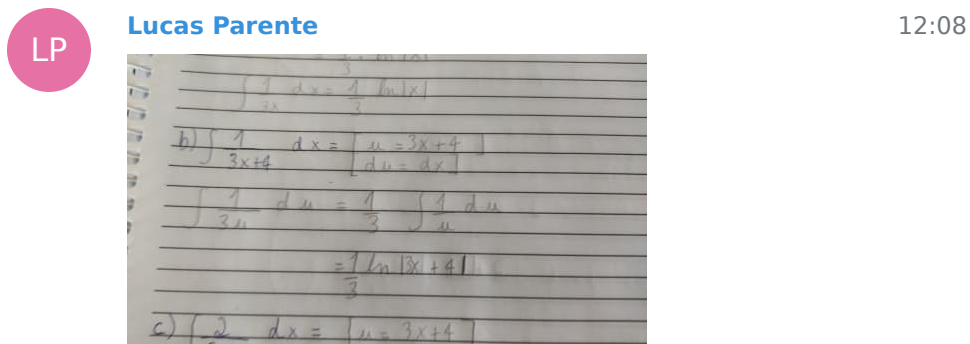 LP
Lucas Parente
12:08
= 1/3 · ln|x|
∫ 1/3x dx = 1/3 ln|x|
b) ∫ 1/3x+4 dx = [ u = 3x+4 ]
[ du = dx ]
∫ 1/3u du = 1/3 ∫ 1/u du
= 1/3 ln |3x + 4|
c) ∫ 2 dx = [ u = 3x+4 ]